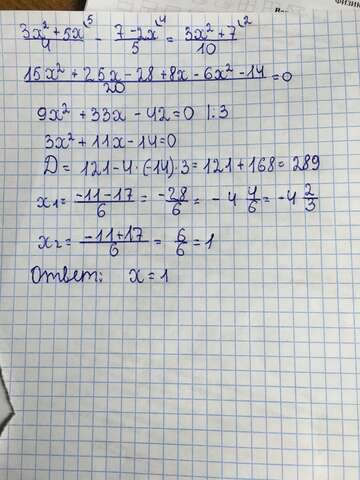 (3x² + 5x)/4 ⁵ - (7 - 2x)/5 ⁴ = (3x² + 7)/10 ²
(15x² + 25x - 28 + 8x - 6x² - 14)/20 = 0
9x² + 33x - 42 = 0 | : 3
3x² + 11x - 14 = 0
D = 121 - 4 · (-14) · 3 = 121 + 168 = 289
x₁ = (-11 - 17)/6 = -28/6 = -4 4/6 = -4 2/3
x₂ = (-11 + 17)/6 = 6/6 = 1
Ответ: x = 1